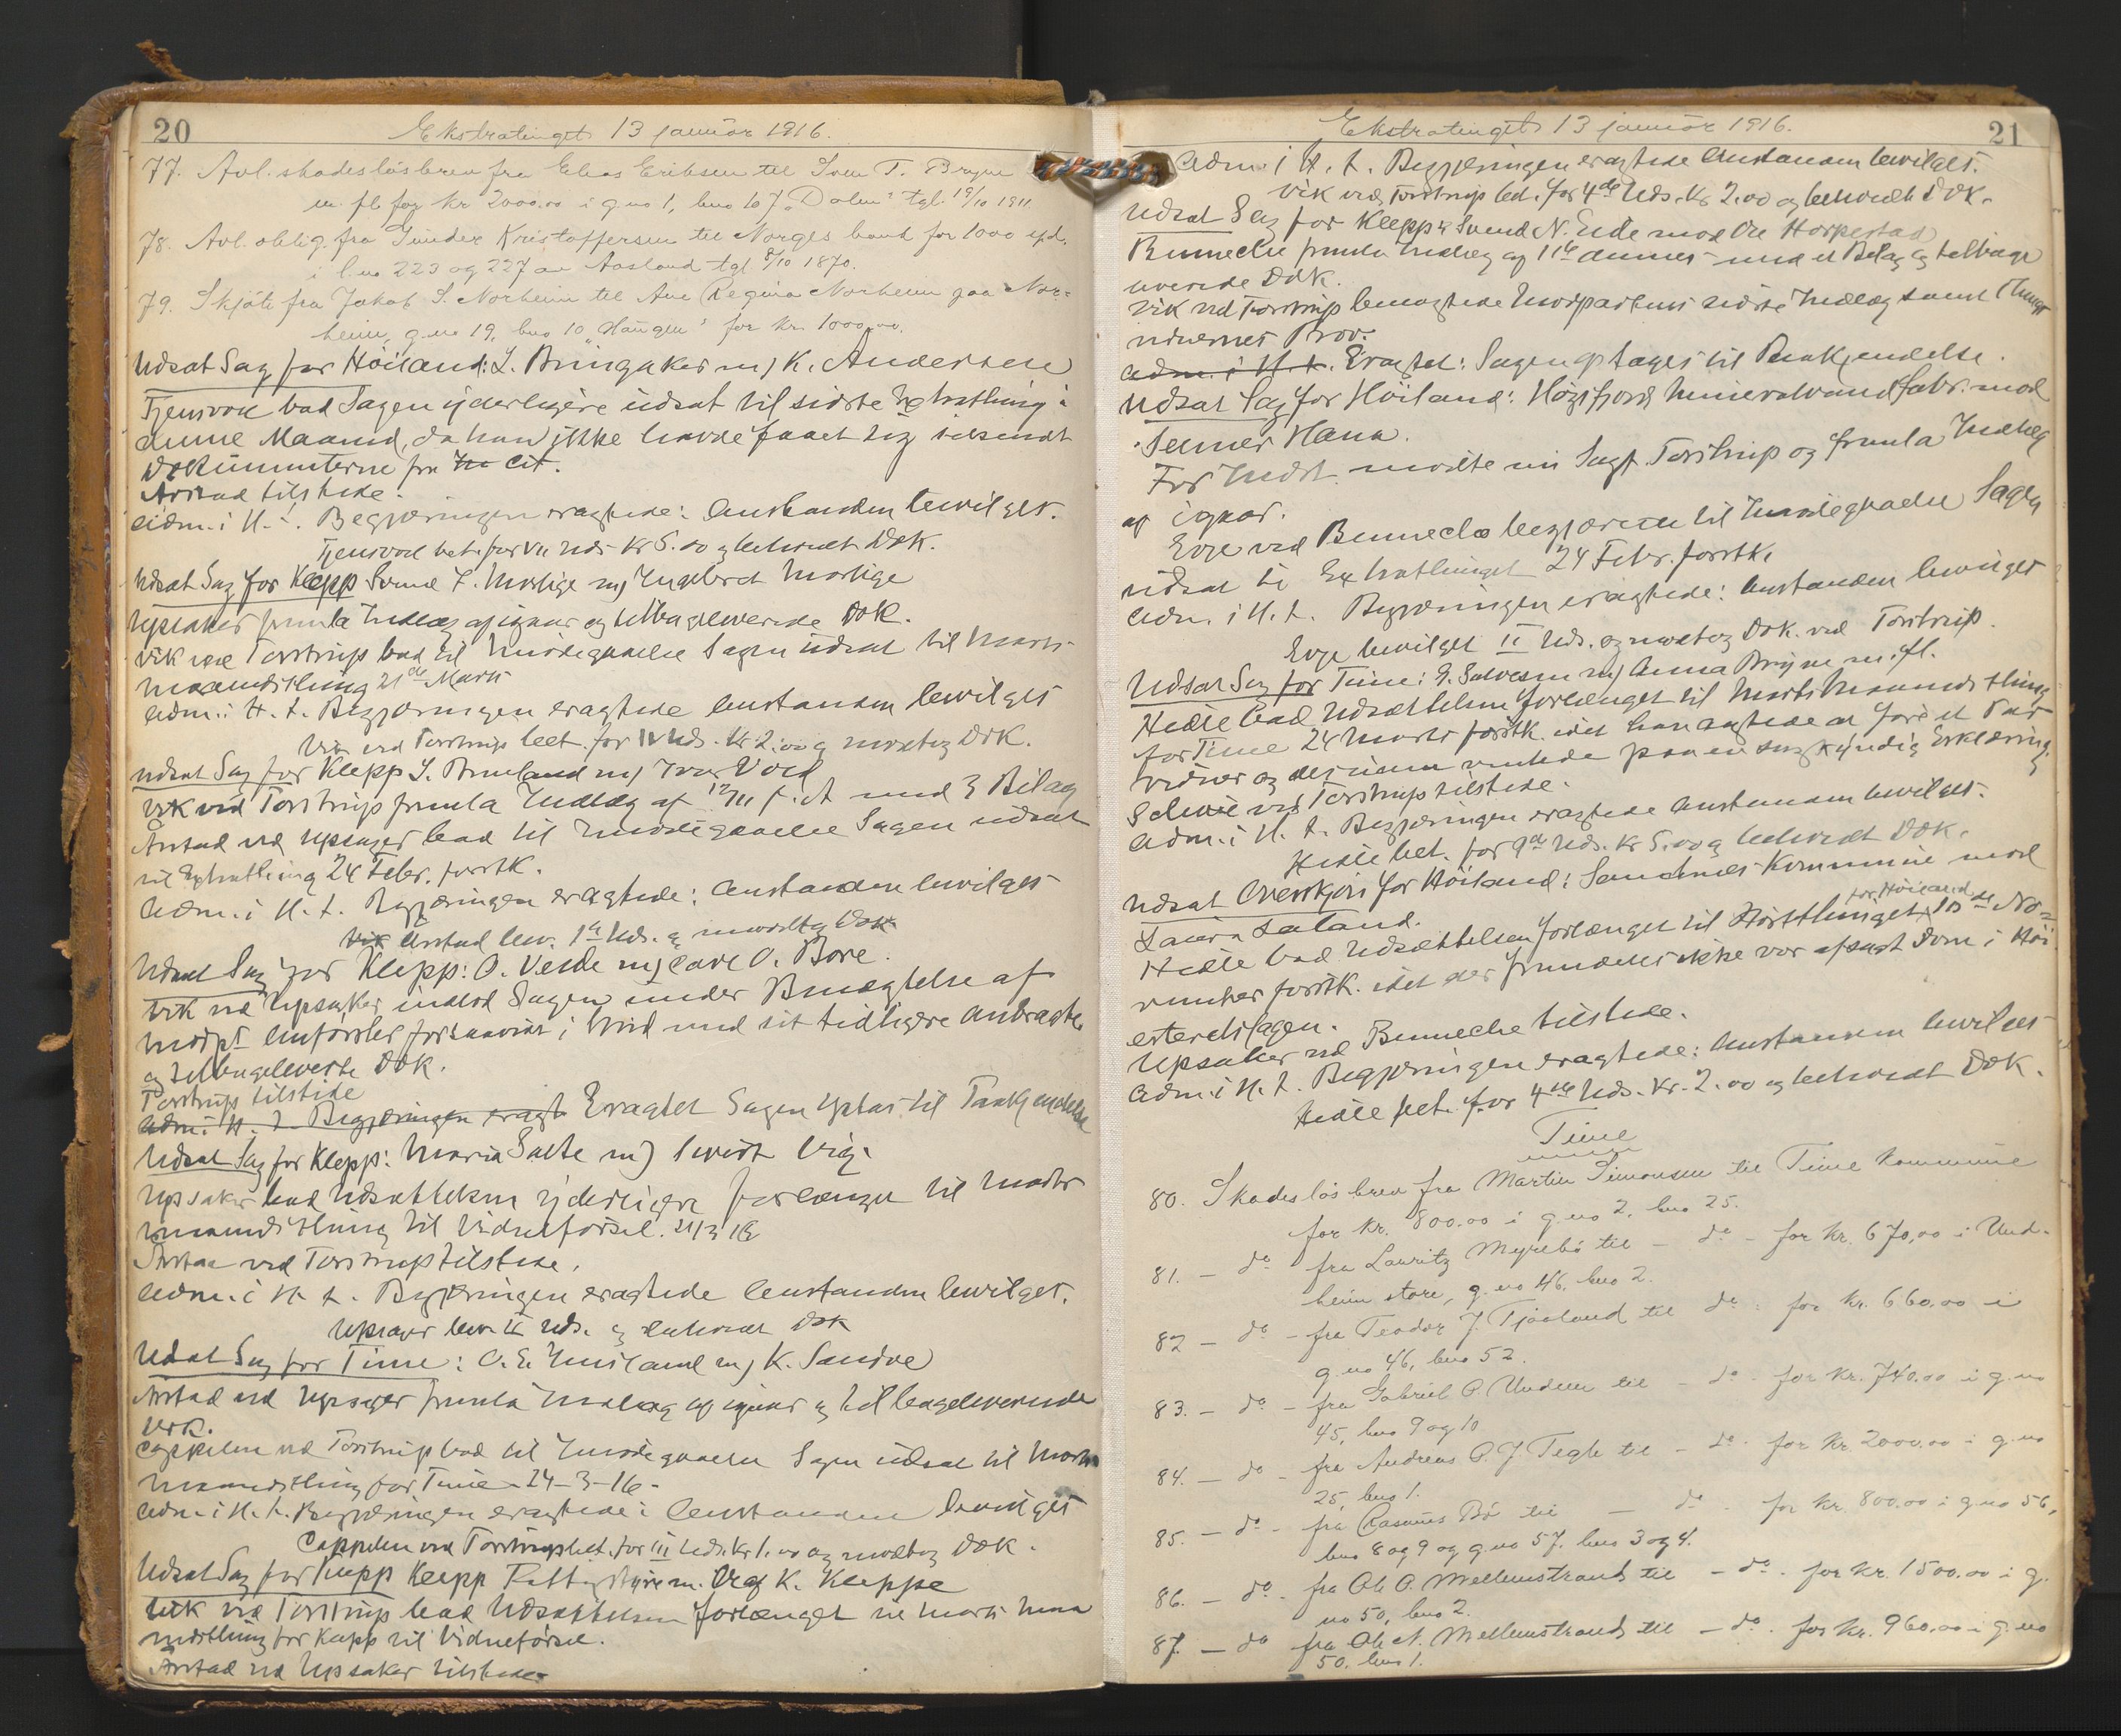 20
Ekstratinget 13 januar 1916.
77. Avl. skadeslösbrev fra Elias Eriksen til Sven T. Bryne
m. fl. for kr 2000.00 i g.no 1, bno 107 „Dalen" tgl. 19/10 1911
78. Avl. oblig. fra Gunder Kristoffersen til Norges bank for 1000 spd.
i l.no 223 og 227 av Aasland tgl 8/10 1870.
79. Skjöte fra Jakob S. Norheim til Ane Regina Norheim paa Nor=
heim, g.no 19, bno 10 „Haugen" for kr. 1000,00.
Udsat Sag for Höiland: L. Bringaker m/ K. Andersen
Tjensvold bad Sagen yderligere udsat til sidste Extrathing i
denne Maaned, da han ikke havde faaet sig tilsendt
Dokumenterne fra Cit.
Arstad tilstede.
Adm. i H. t. Begjæringen eragtede: Anstanden bevilget.
Tjensvold bet. for VII Uds. Kr 5.00 og beholdt Dok.
Udsat Sag for Klepp Svend T. Morlige m/ Ingebret Morlige
Upsaker fremla Indlæg af igaar og tilbageleverede Dok.
Vik ved Torstrup bad til Imødegaaelse Sagen udsat til Marts
maanedsthing 21de Marts
Adm. i H. t. Begjæringen eragtede Anstanden bevilget
Vik ved Torstrup bet. for IV Uds. Kr 2.00 og modtog Dok.
Udsat Sag for Klepp S. Bruland m/ Ivar Vold
Vik ved Torstrup fremla Indlæg af 12/11 f. A med 3 Bilag
Arstad ved Upsager bad til Imødegaaelse Sagen udsat
til Extrathing 24 Febr. førstk.
Adm. i H. t. Begjæringen eragtede: Anstanden bevilget
Arstad bev. 1ste Uds. og modtog Dok
Udsat Sag for Klepp: O. Velde m/ Carl O. Bore.
Vik ved Upsaker indlod Sagen under Benægtelse af
Modpts Anførsler forsaavidt i Strid med sit tidligere Anbragte
og tilbageleverte Dok.
Torstrup tilstede
Adm. i H. t. Begjæringen eragt Eragtet Sagen optas til Paakjendelse
Udsat Sag for Klepp: Maria Salte m/ Sivert Vig.
Upsaker bad Udsættelsen yderligere forlænget til Marts
maanedsthing til Vidneførsel. 21/3 16
Arstad ved Torstrup tilstede.
Adm. i H. t. Begjæringen eragtede Anstanden bevilget.
Upsager bev. II Uds. og beholdt Dok
Udsat Sag for Time: O. E. m/ K. Sandve
Arstad ved Upsager fremla Indlæg af igaar og tilbageleverede
Dok.
Cappelen ved Torstrup bad til Imødegaaelse Sagen udsat til Marts
maanedsthing for Time - 24-3-16-
Adm. i H. t. Begjæringen eragtede: Anstanden bevilget
Cappelen ved Torstrup bet. for III Uds. Kr 1.00 og modtog Dok.
Udsat Sag for Klepp Klepp m. K. Kleppe
Vik ved Torstrup bad Udsættelsen forlænget til Marts Maa
nedsthing for Klepp til Vidneførsel.
Arstad ved Upsaker tilstede
21
Ekstratinget 13 januar 1916.
Adm. i H. t. Begjæringen eragtede Anstanden bevilget.
Vik ved Torstrup bet. for 4de Uds. Kr 2.00 og beholdt Dok.
Udsat Sag for Klepp: Svend N. Eide mod Ole Horpestad
Benneche fremla Indlæg af 11te dennes med et Bilag og tilbage
leverede Dok.
Vik ved Torstrup benægtede Modpartens sidste Indlæg samt
vidnernes Prov.
Adm. i H. t. Eragtet: Sagen optages til Paakjendelse.
Udsat Sag for Höiland: Høgsfjord Mineralvandfabr. mod
Hana.
For Indst. mødte nu Sagf. Torstrup og fremla Indlæg
af igaar.
Evje ved Benneche begjærede til Imødegaaelse Sagen
udsat til Extrathinget 24 Febr. førstk.
Adm. i H. t. Begjæringen eragtede: Anstanden bevilget
Evje bevilget II Uds. og modtog Dok. ved Torstrup.
Udsat Sag for Time: G. Salvesen m/ Anna Bryne m. fl.
Hedle bad Udsættelsen forlænget til Marts Maanedsthing
for Time 24 Marts førstk. idet han agtede at føre et Par
Vidner og desuden ventede paa en sagkyndig Erklæring
ved Torstrup tilstede.
Adm. i H. t. Begjæringen eragtede Anstanden bevilget.
Hedle bet. for 9de Uds. Kr 5.00 og beholdt Dok.
Udsat for Höiland: Sandnes Kommune mod
Laura Søland.
Hedle bad Udsættelsen forlænget til Høstthinget for Höiland 10de No=
vember førstk. idet der fremdeles ikke var afsagt Dom i Höi
esteretssagen.
Upsaker ved Benneche tilstede.
Adm. i H. t. Begjæringen eragtede: Anstanden bevilget
Hedle bet. for 4de Uds. Kr. 2.00 og beholdt Dok.
Time
80. Skadeslösbrev fra Martin Simonsen til Time kommune
for kr. 800.00 i g.no 2, bno 25.
81. - do fra Lauritz Myrebö til - do - for kr. 670,00 i Und-
heim store, g.no 46, bno 2.
82 - do - fra Teodor J. Tjaaland til do - for kr. 660.00 i
g.no 46, bno 52.
83. - do - fra Gabriel P. Undem til - do - for kr. 740.00 i g.no
45, bno 9 og 10
84. - do - fra Andreas P. J. Tegle til - do - for kr. 2000.00 i g.no
25, bno 1.
85. - do - fra Rasmus Bö til - do - for kr. 800.00 i g.no 56,
bno 8 og 9 og g.no 57, bno 3 og 4.
86. - do - fra Ole O. Mellemstrand til - do - for kr. 1500.00 i g.
no 50, bno 2.
87. - do fra Ole N. Mellemstrand til - do - for kr. 960,00 i g.no
50, bno 1.